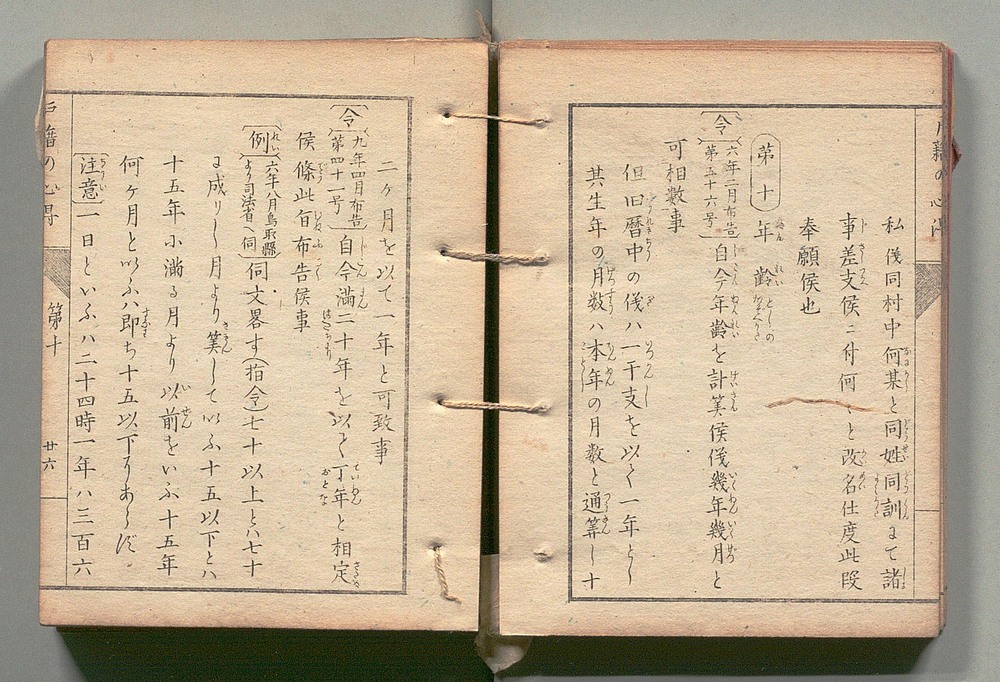 戸籍の心得
私儀同村中何某と同姓同訓にて諸
事差支候ニ付何〻と改名仕度此段
奉願候也
第十 年齢
〔令〕六年二月布告第五十六号 自今年齢を計筭候儀幾年幾月と
可相數事
但旧暦中の儀ハ一干支を以て一年とし
其生年の月数ハ本年の月数と通筭し十
二ヶ月を以て一年と可致事
〔令〕九年四月布告第四十一号 自今満二十年を以て丁年と相定
候條此旨布告候事
〔例〕六年八月鳥取縣より司法省へ伺 伺文畧す(指令)七十以上とハ七十
に成りし月より筭して以ふ十五以下とハ
十五年小満る月より以前をいふ十五年
何ヶ月と以ふハ即ち十五以下りあらず。
〔注意〕一日といふハ二十四時一年ハ三百六
戸籍の心得
第十
廿六